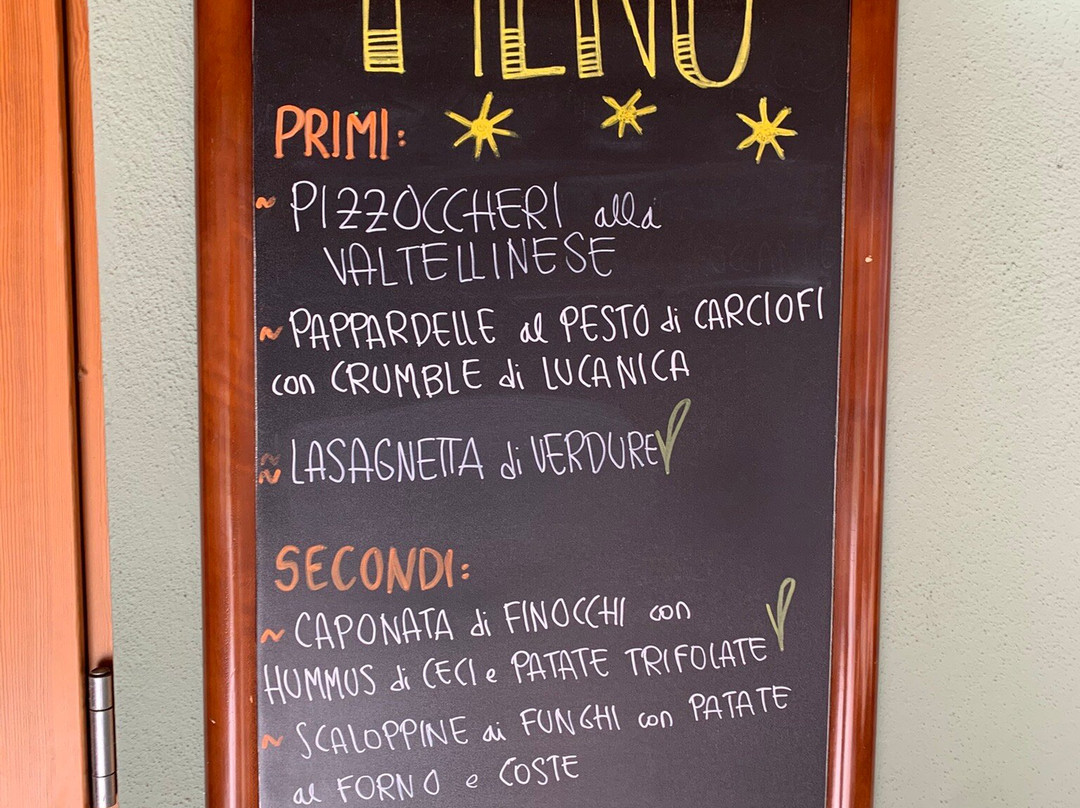 MENÙ
PRIMI:
~ PIZZOCCHERI alla
VALTELLINESE
~ PAPPARDELLE al PESTO di CARCIOFI
con CRUMBLE di LUCANICA
~ LASAGNETTA di VERDURE
SECONDI:
~ CAPONATA di FINOCCHI con
HUMMUS di CECI e PATATE TRIFOLATE
~ SCALOPPINE ai FUNGHI con PATATE
al FORNO e COSTE